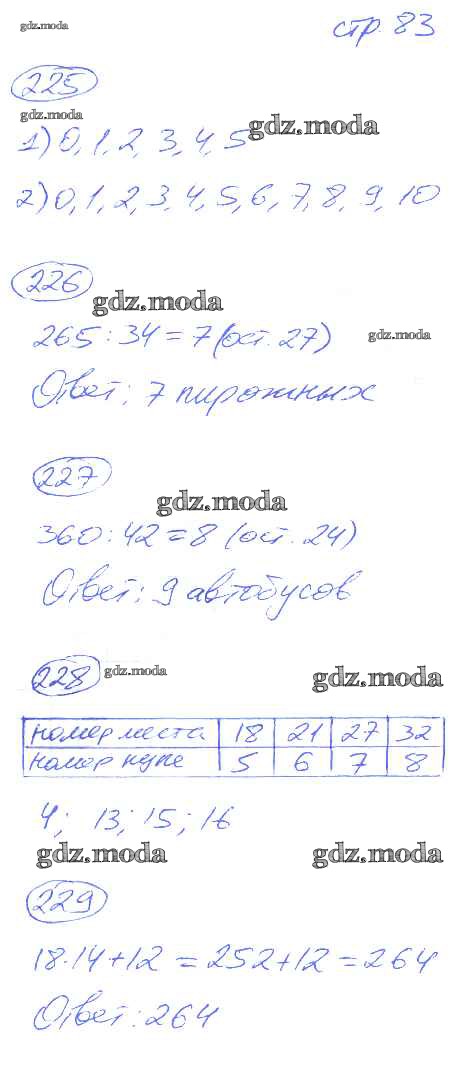 gdz.moda
стр. 83
225
gdz.moda
gdz.moda
1) 0, 1, 2, 3, 4, 5
2) 0, 1, 2, 3, 4, 5, 6, 7, 8, 9, 10
226
gdz.moda
265 : 34 = 7 (ост. 27)
gdz.moda
Ответ: 7 пирожных
227
gdz.moda
360 : 42 = 8 (ост. 24)
Ответ: 9 автобусов
228
gdz.moda
gdz.moda
номер места 18 21 27 32
номер купе 5 6 7 8
4; 13; 15; 16
gdz.moda
gdz.moda
229
18·14+12 = 252+12 = 264
Ответ: 264